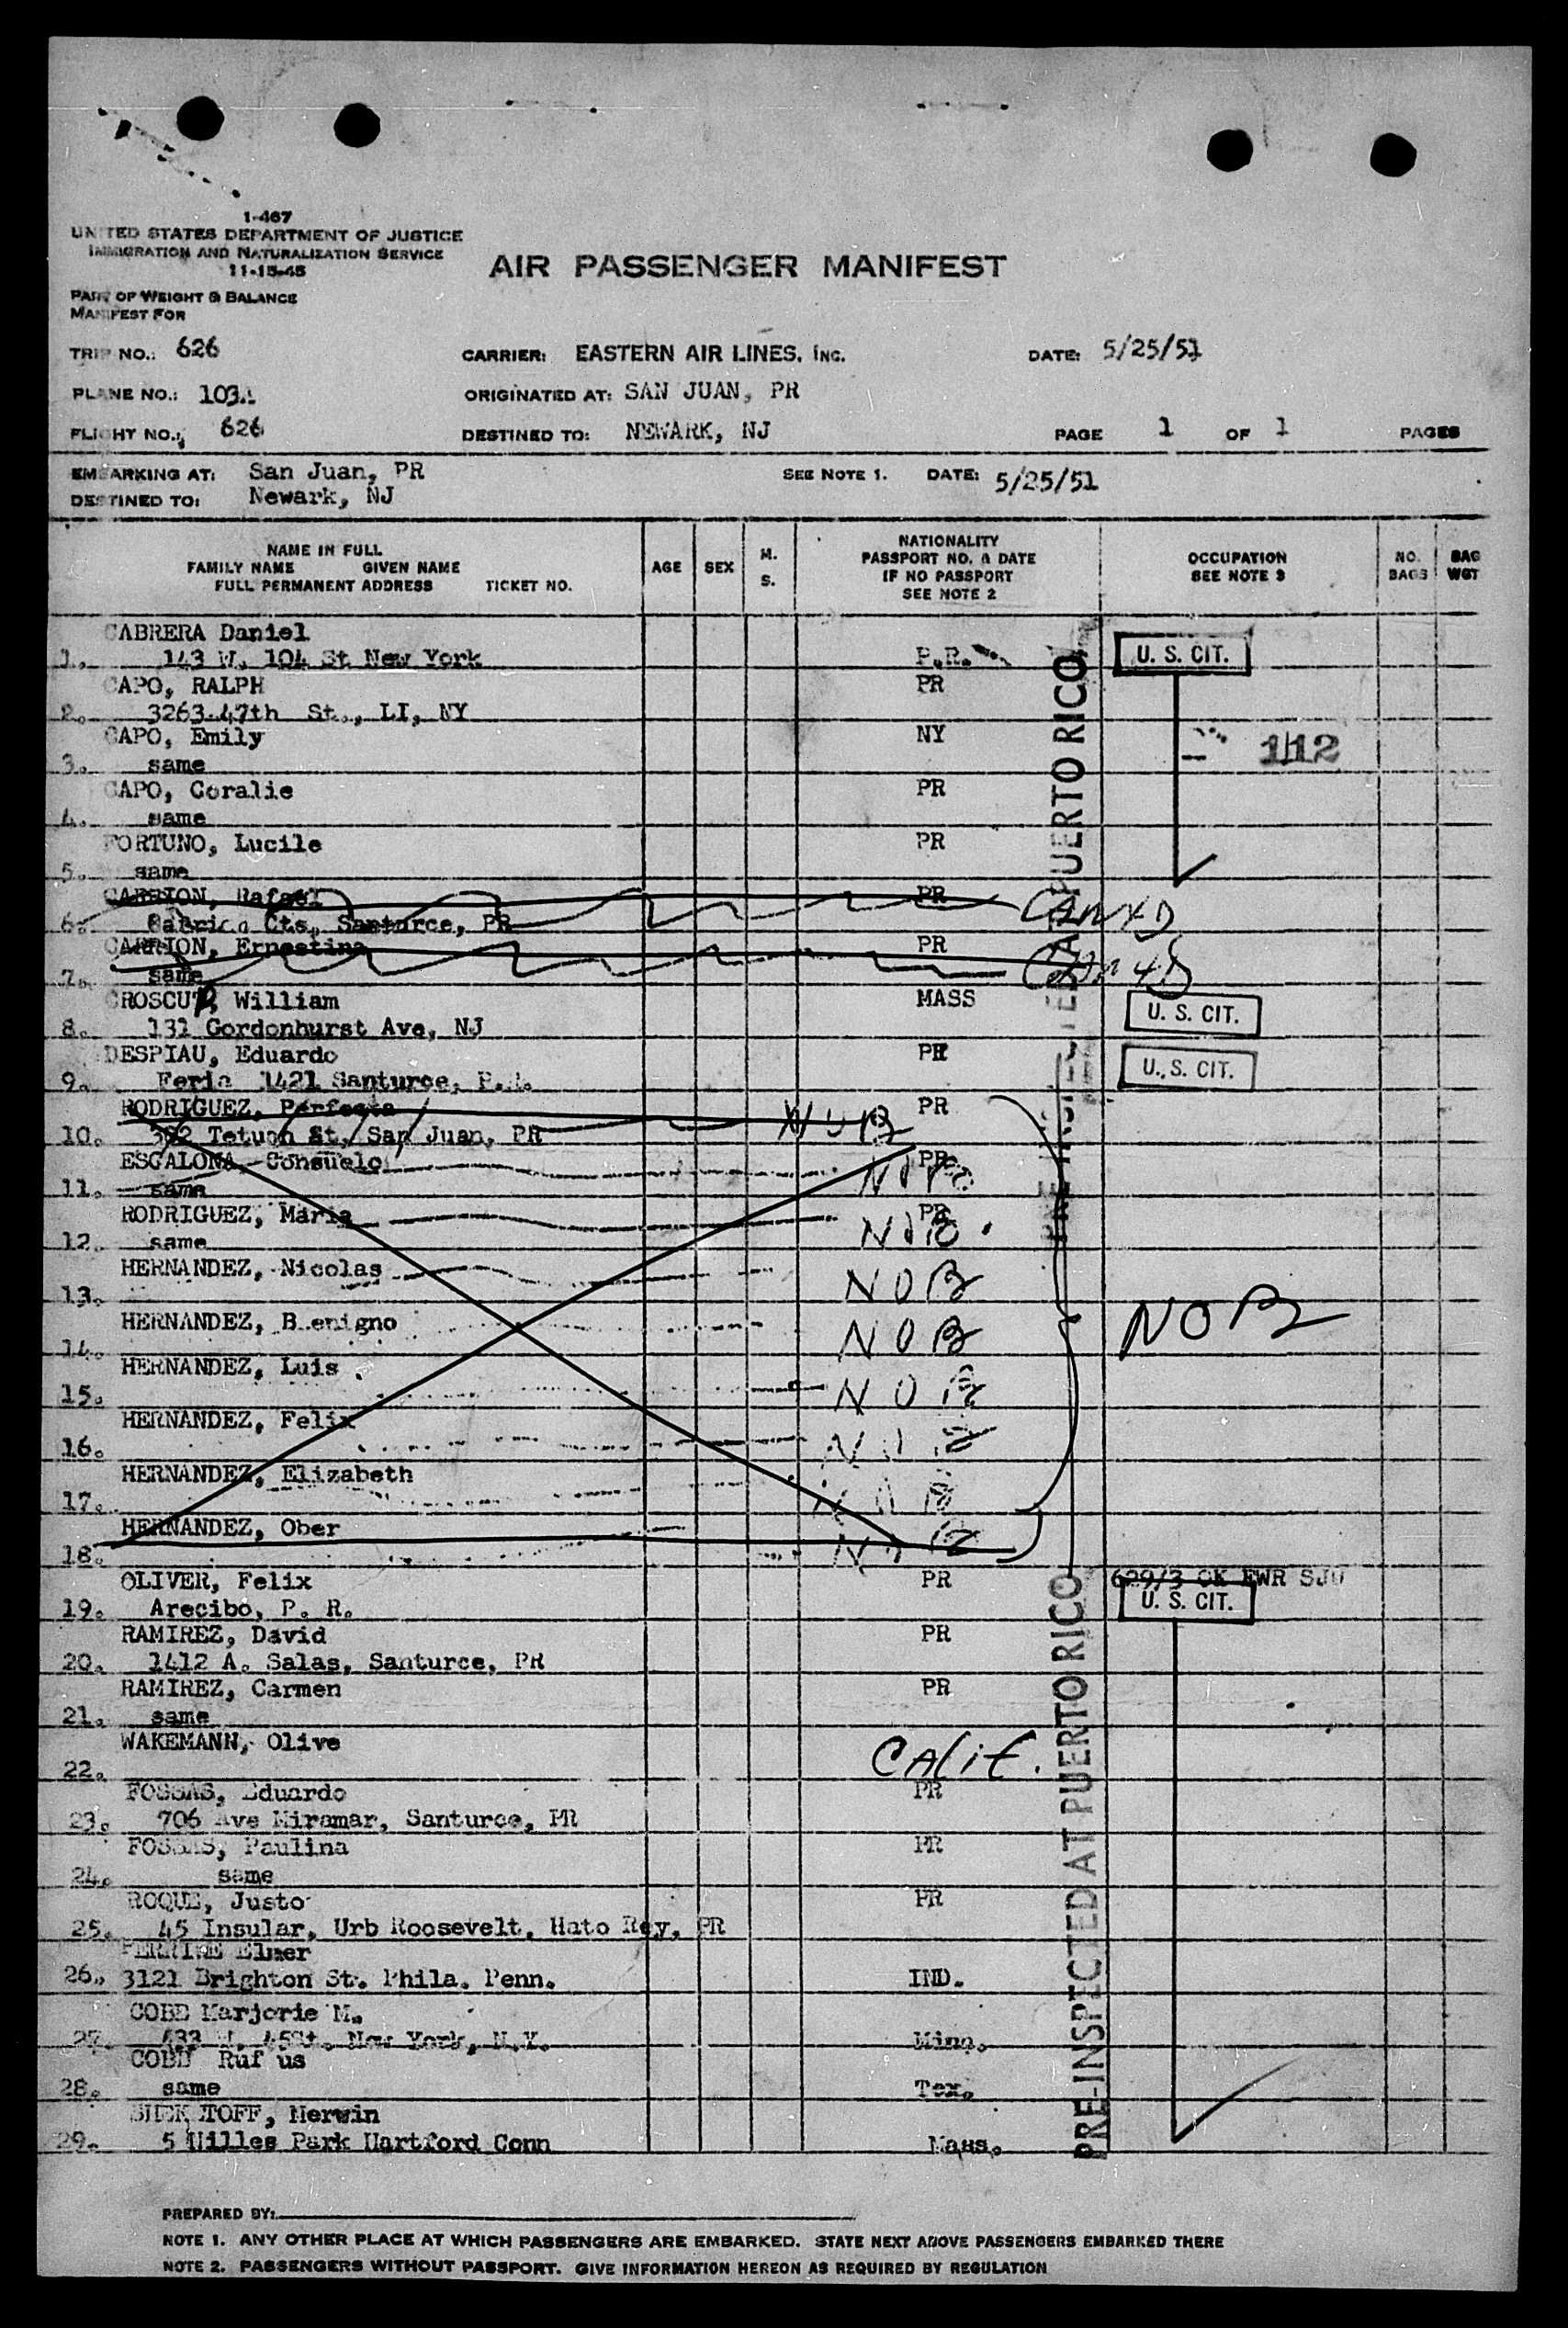 1-467
UNITED STATES DEPARTMENT OF JUSTICE
IMMIGRATION AND NATURALIZATION SERVICE
11-15-45
AIR PASSENGER MANIFEST
PART OF WEIGHT & BALANCE
MANIFEST FOR
TRIP NO.: 626 CARRIER: EASTERN AIR LINES, INC. DATE: 5/25/51
PLANE NO.: 103 ORIGINATED AT: SAN JUAN, PR
FLIGHT NO.: 626 DESTINED TO: NEWARK, NJ PAGE 1 OF 1 PAGES
EMBARKING AT: San Juan, PR SEE NOTE 1. DATE: 5/25/51
DESTINED TO: Newark, NJ
NAME IN FULL
FAMILY NAME GIVEN NAME
FULL PERMANENT ADDRESS TICKET NO.
AGE
SEX
M.
S.
NATIONALITY
PASSPORT NO. & DATE
IF NO PASSPORT
SEE NOTE 2
OCCUPATION
SEE NOTE 3
NO.
BAGS
BAG
WGT
CABRERA Daniel
1. 143 W. 104 St New York P.R. U. S. CIT.
CAPO, RALPH PR
2. 3263 47th St., LI, NY
CAPO, Emily NY 1112
3. same
CAPO, Coralie PR
4. same
FORTUNO, Lucile PR
5. same
CARRION, Rafael PR CANXD
6. Cts., Santurce, PR
CARRION, Ernestina PR
7. same
CROSCUP, William MASS U. S. CIT.
8. 131 Gordonhurst Ave, NJ
DESPIAU, Eduardo PR
9. Feria 1421 Santurce, P.R. U. S. CIT.
RODRIGUEZ, Perfecta PR
10. 302 Tetuan St, San Juan, PR NOB
ESCALONA, Consuelo PR
11. same NOB
RODRIGUEZ, Maria PR
12. same NOB
HERNANDEZ, Nicolas
13. NOB
HERNANDEZ, Benigno NOB
14. NOB
HERNANDEZ, Luis
15. NOB
HERNANDEZ, Felix
16. NOB
HERNANDEZ, Elizabeth
17. NOB
HERNANDEZ, Ober
18. NOB
OLIVER, Felix PR 629/3 OK EWR SJU
19. Arecibo, P. R. U. S. CIT.
RAMIREZ, David PR
20. 1412 A. Salas, Santurce, PR
RAMIREZ, Carmen PR
21. same
WAKEMANN, Olive
22. Calif.
FOSSAS, Eduardo PR
23. 706 Ave Miramar, Santurce, PR
FOSSAS, Paulina PR
24. same
ROQUE, Justo PR
25. 45 Insular, Urb Roosevelt, Hato Rey, PR
PERRINE Elmer
26. 3121 Brighton St. Phila. Penn. IND.
COBB Marjorie M.
27. 433 W. 45St. New York, N.Y. Minn.
COBB Rufus
28. same Tex.
SHEKETOFF, Merwin
29. 5 Milles Park Hartford Conn Mass.
PUERTO RICO
PRE-INSPECTED AT PUERTO RICO
PREPARED BY:
NOTE 1. ANY OTHER PLACE AT WHICH PASSENGERS ARE EMBARKED. STATE NEXT ABOVE PASSENGERS EMBARKED THERE
NOTE 2. PASSENGERS WITHOUT PASSPORT. GIVE INFORMATION HEREON AS REQUIRED BY REGULATION